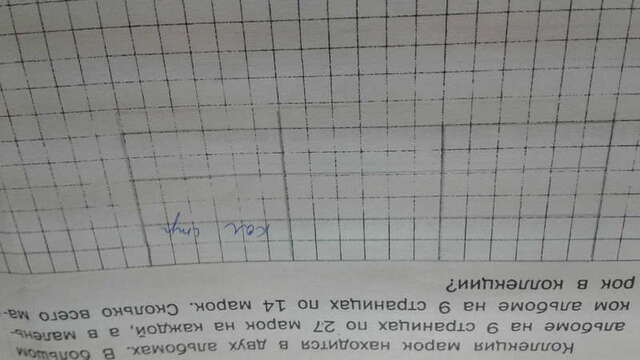 Коллекция марок находится в двух альбомах. В большом
альбоме на 9 страницах по 27 марок на каждой, а в малень-
ком альбоме на 9 страницах по 14 марок. Сколько всего ма-
рок в коллекции?
кол стр